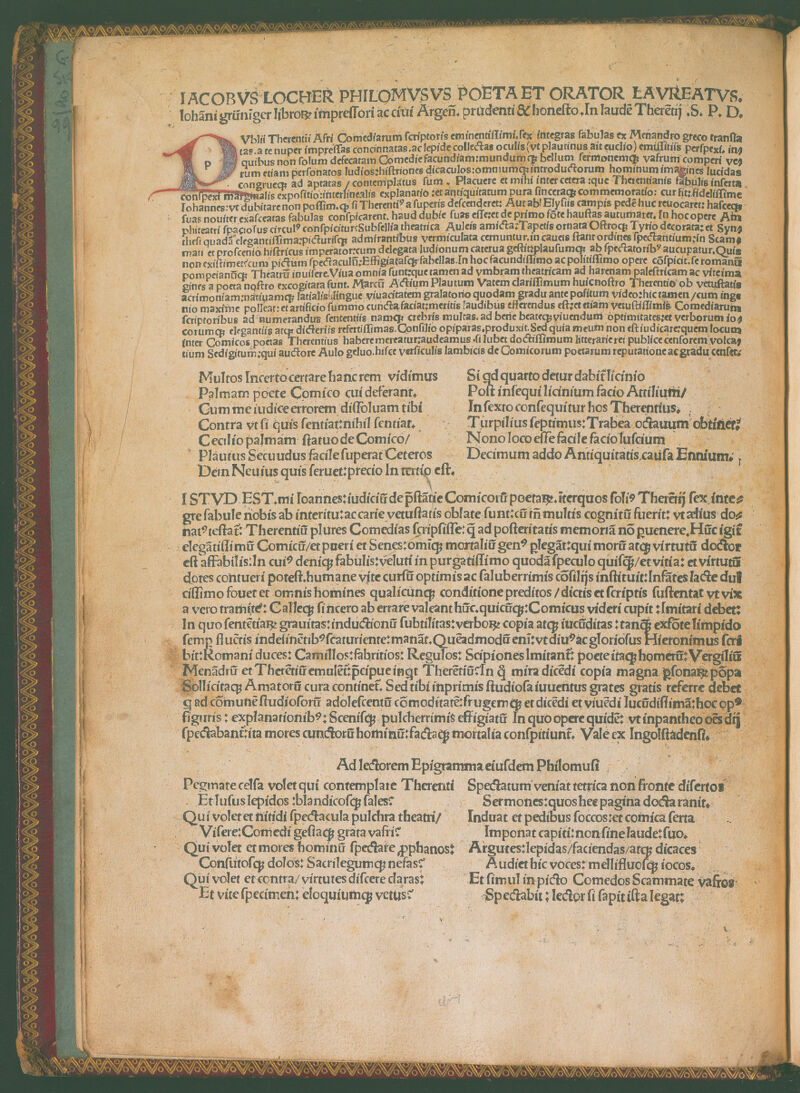 IACOBVS LOCHER PHILOMVSVS POETA ET ORATOR LAVREATVS.
Iohāni grüniger libroꝝ impreſſori ac ciui Argeñ. prudenti & honeſto. In laudē Therētij .S. P. D.
P
Vblii Therentii Afri Comediarum ſcriptoris eminentiſſimi. ſex integras fabulas ex Menandro greco tranſla
tas. a te nuper impreſſas concinnatas. ac lepide collectas oculis (vt plautinus ait euclio) emiſſitiis perſpexi. in
quibus non ſolum defecatam Comedie facundiam: mundumqꝫ bellum ſermonemqꝫ vafrum comperi ve
rum etiam perſonatos ludios: hiſtriones dicaculos: omniumqꝫ introductorum hominum imagines lucidas
congrueqꝫ ad aptatas / contemplatus ſum. Placuere et mihi inter cetera: que Therentianis fabulis inſerta
conſpexi marginalis expoſitio: interlinealis explanatio et antiquitatum pura ſinceraqꝫ commemoratio: cura ſit: fideliſſime
Iohannes: vt dubitare non poſſim. qꝫ ſi Therentiꝰ a ſuperis deſcenderet: Aut ab Elyſiis campis pedē huc reuocaret: haſceqꝫ
ſuas nouiter exaſceatas fabulas conſpicarent. haud dubie ſuas eſſe et de primo fōte hauſtas autumaret. In hoc opere Am
phiteatri ſpacioſus circulꝰ conſpicitur: Subſellia theatrica Auleis amicta: Tapetis ornata Oſtroqꝫ Tyrio decorata: et Syn
theſi quadā elegantiſſima: picturiſqꝫ admirantibus vermiculata cernuntur. in caueis ſtant ordines ſpectantium: in Scam
mati et proſcenio hiſtricus imperator: cum delegata ludionum caterua geſtit: plauſumqꝫ ab ſpectatoribꝰ aucupatur. Quis
non exiſtimet: cum pictum ſpectaculū: Effigiataſqꝫ fabellas. In hoc facundiſſimo ac politiſſimo opere cōſpicit. ſe romanū
pompeianūqꝫ Theatrū inuiſere. Viua omnia ſunt: que tamen ad vmbram theatricam ad harenam paleſtricam ac vite ima
gines a poeta noſtro excogitata ſunt. Marcū Actium Plautum Vatem clariſſimum huic noſtro Therentio ob vetuſtatis
acrimoniam: natiuamqꝫ latialis lingue viuacitatem gralatorio quodam gradu ante poſitum video: hic tamen / cum inge
nio maxime polleat: et artificio ſummo cuncta faciat: meritis laudibus efferendus eſt: et etiam vetuſtiſſimis Comediarum
ſcriptoribus ad numerandus ſententiis namqꝫ crebris multas. ad bene beateqꝫ viuendum optimitates: et verborum io
corumqꝫ elegantiis atqꝫ dicteriis refertiſſimas. Conſilio opiparas. produxit. Sed quia meum non eſt iudicare: quem locum
inter Comicos poetas Therentius habere mereatur: audeamus. ſi lubet doctiſſimum litterarie rei publice cenſorem volca
tium Sedigitum: qui auctore Aulo geluo. hiſce verſiculis Iambicis de Comicorum poetarum reputatione ac gradu cenſet
Multos Incerto certare hanc rem vidimus
Palmam poete Comico cui deferant.
Cum me iudice errorem diſſoluam tibi
Contra vt ſi quis ſentiat: nihil ſentiat.
Cecilio palmam ſtatuo de Comico/
Plautus Secuudus facile ſuperat Ceteros
Dein Neuius quis feruet: precio In tertio eſt.
Si qd quarto detur dabit̄ licinio
Poſt inſequi licinium facio Attilium/
In ſexto conſequitur hos Therentius.
Turpilius ſeptimus: Trabea octauum obtinet:
Nono loco eſſe facile facio luſcium
Decimum addo Antiquitatis cauſa Ennium.
ISTVD EST. mi Ioannes: iudiciū de p̄ſtātie Comicorū poetaꝝ. īter quos ſoliꝰ Therētij ſex inte
gre fabule nobis ab interitu: ac carie vetuſtatis oblate ſunt: cū tn̄ multis cognitū fuerit: vt ælius do
natꝰ teſtat̄: Therentiū plures Comedias ſcripſiſſe: q̄ ad poſteritatis memoriā nō puenere. Hūc igit̄
elegātiſſimū Comicū / et pueri et Senes: omīqꝫ mortaliū genꝰ plegāt: qui morū atqꝫ virtutū doctor
eſt affabilis: In cuiꝰ deniqꝫ fabulis: veluti in purgatiſſimo quodā ſpeculo quiſqꝫ / et vitia: et virtutū
dores contueri poteſt. humane vite curſū optimis ac ſaluberrimis cōſilijs inſtituit: Infātes lacte dul
ciſſimo fouet et omnis homines qualicunqꝫ conditione preditos / dictis et ſcriptis ſuſtentat vt vix
a vero tramite: Calleqꝫ ſincero ab errare valeant hūc. quicūqꝫ: Comicus videri cupit: Imitari debet:
In quo ſentētiaꝝ grauitas: inductionū ſubtilitas: verboꝝ copia atqꝫ iucūditas: tanqꝫ ex fōte limpido
ſemp fluētis indeſinētibꝰ ſcaturiente: manāt. Quēadmodū eni: vt diuꝰ ac glorioſus Hieronimus ſcri
bit: Romani duces: Camillos: fabritios: Regulos: Scipiones Imitant̄: poete itaqꝫ homerū: Vergiliū
Menādrū et Therētiū emulēt̄: p̄cipue inqt Therētiū: In q̄ mira dicēdi copia magna pſonaꝝ pōpa
Sollicitaqꝫ Amatorū cura continet̄. Sed tibi inprimis ſtudioſa iuuentus grates gratis referre debet
q ad cōmunē ſtudioſorū adoleſcentū cōmoditatē: frugemqꝫ et dicēdi et viuēdi Iucūdiſſimā: hoc opꝰ
figuris: explanationibꝰ: Sceniſqꝫ pulcherrimis effigiatū In quo opere quidē: vt in pantheo oēs dij
ſpectabant̄: ita mores cunctorū hominū: factaqꝫ mortalia conſpitiunt̄. Vale ex Ingolſtadenſi.
Ad lectorem Epigramma eiuſdem Philomuſi
Pegmate celſa volet qui contemplare Therenti
Et luſus lepidos: blandicoſqꝫ ſales?
Qui volet et nitidi ſpectacula pulchra theatri/
Viſere: Comedi geſtaqꝫ grata vafri?
Qui volet et mores hominū ſpectare ꝓphanos:
Conſutoſqꝫ dolos: Sacrilegumqꝫ nefas?
Qui volet et contra / virtutes diſcere claras:
Et vite ſpecimen: eloquiumqꝫ vetus?
Spectatum veniat tetrica non fronte diſertos
Sermones: quos hec pagina docta ranit.
Induat et pedibus foccos: et comica ſerta
Imponat capiti: non ſine laude: ſuo.
Argutes: lepidas / faciendas / atqꝫ dicaces
Audiet hic voces: mellifluoſqꝫ iocos.
Et ſimul in picto Comedos Scammate vafros
Spectabit: lector ſi ſapit iſta legat: